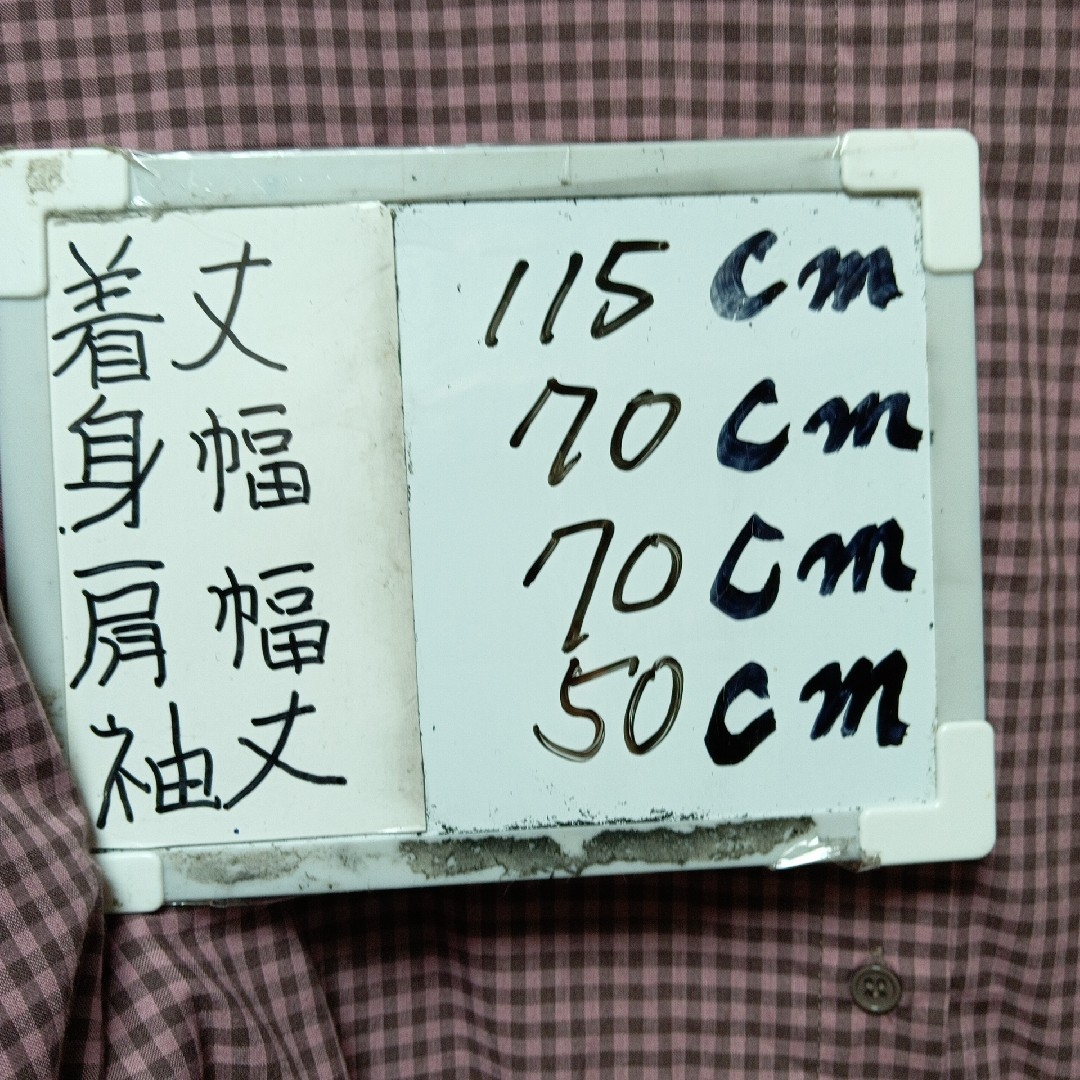 着丈 115 cm
身幅 70 cm
肩幅 70 cm
袖丈 50 cm